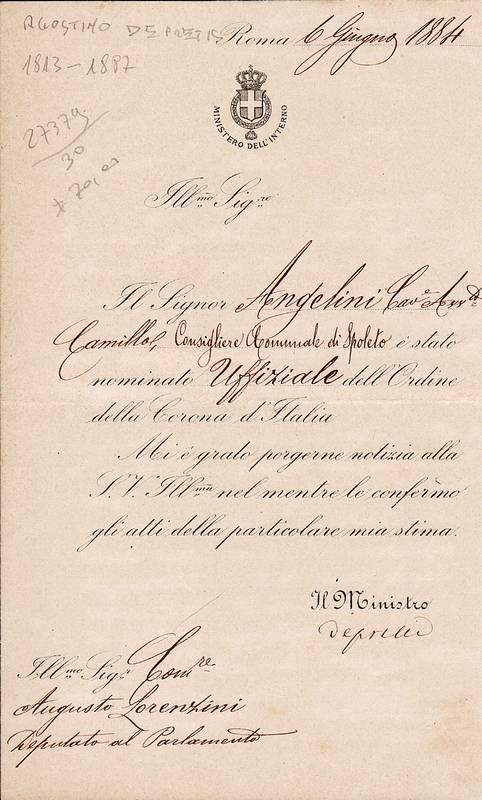 AGOSTINO DEPRETIS
1813-1887
27379
30
Roma 6 Giugno 1884
MINISTERO DELL'INTERNO
Ill.mo Sig.re
Il Signor Angelini Cav.e Avv.to
Camillo, Consigliere Comunale di Spoleto è stato
nominato Uffiziale dell'Ordine
della Corona d'Italia
Mi è grato porgerne notizia alla
S.V. Ill.ma nel mentre le confermo
gli atti della particolare mia stima.
Il Ministro
Depretis
Ill.mo Sig.r Com.re
Augusto Lorenzini
Deputato al Parlamento